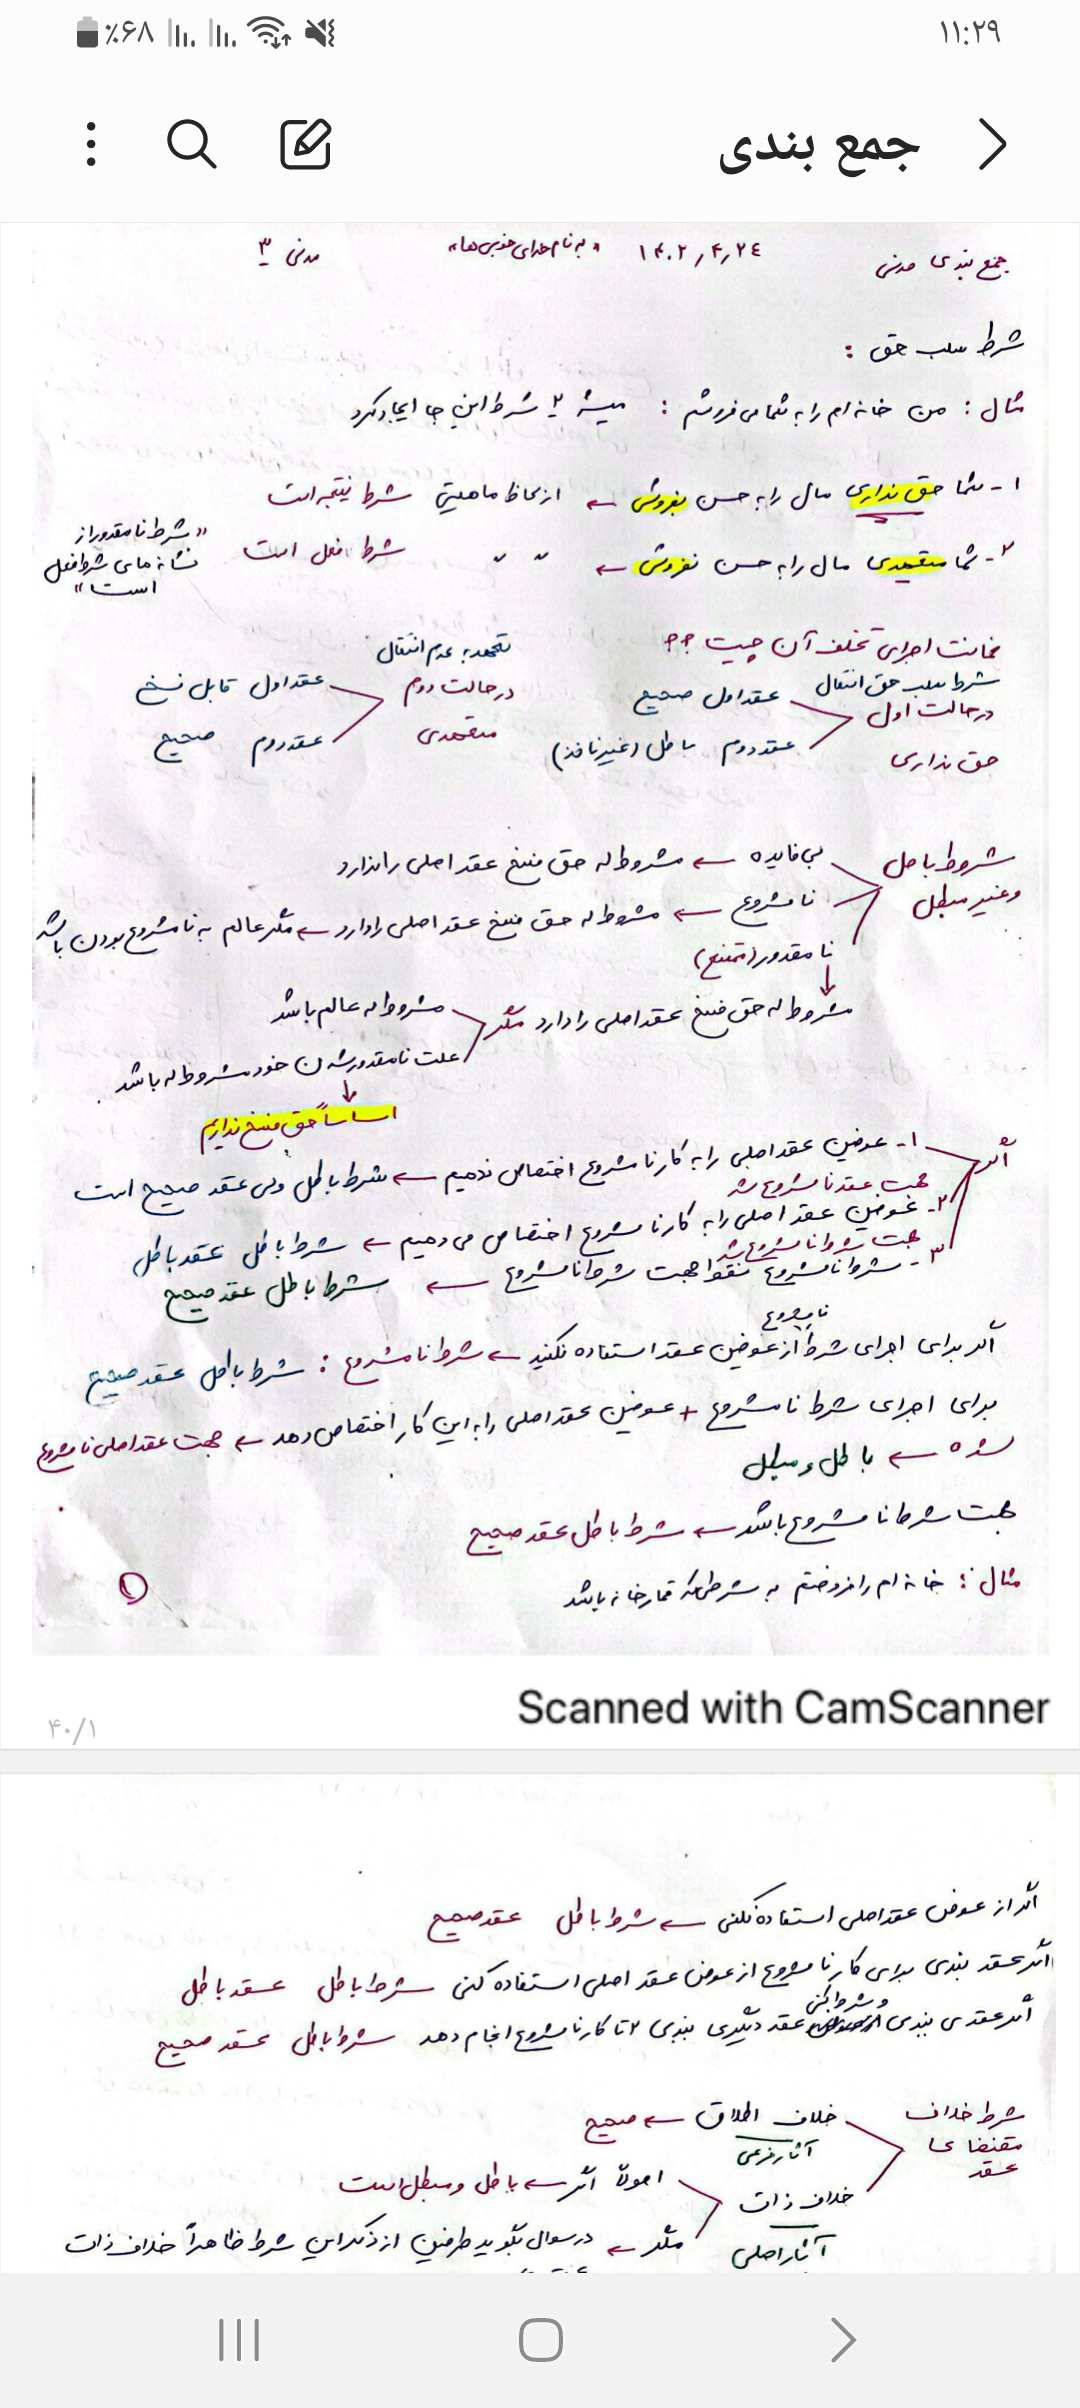 ۱۱:۲۹
٪۶۸
جمع بندی
جمع بندی مدنی ۱۴۰۲٫۴٫۲۴ «به نام خدای خوبی ها» مدنی ۳
شرط سلب حق :
مثال : من خانه ام را به شما می فروشم : میشه ۲ شرط این جا ایجاد کرد
۱- شما حق نداری مال را به حسن بفروشی ← از لحاظ ماهیتی شرط نتیجه است
۲- شما متعهدی مال را به حسن نفروشی ← " " شرط فعل است
«شرط نامقدور از
نشانه های شرط فعل
است»
ضمانت اجرای تخلف آن چیست ؟؟
شرط سلب حق انتقال
در حالت اول
حق نداری
عقد اول صحیح
عقد دوم باطل (غیرنافذ)
تعهد به عدم انتقال
در حالت دوم
متعهدی
عقد اول قابل فسخ
عقد دوم صحیح
شروط باطل
و غیر مبطل
بی فایده ← مشروط له حق فسخ عقد اصلی را ندارد
نامشروع ← مشروط له حق فسخ عقد اصلی را دارد ← مگر عالم به نامشروع بودن باشد
نامقدور (ممتنع)
مشروط له حق فسخ عقد اصلی را دارد مگر
مشروط له عالم باشد
علت نامقدور شدن خود مشروط له باشد
اساساً حق فسخ نداریم
اگر
۱- عوضین عقد اصلی را به کار نامشروع اختصاص ندهیم ← شرط باطل ولی عقد صحیح است
جهت عقد نامشروع شد
۲- عوضین عقد اصلی را به کار نامشروع اختصاص می دهیم ← شرط باطل عقد باطل
جهت شرط نامشروع شد
۳- شرط نامشروع فقط جهت شرط نامشروع ← شرط باطل عقد صحیح
نامشروع
اگر برای اجرای شرط از عوضین عقد استفاده نکنید ← شرط نامشروع : شرط باطل عقد صحیح
برای اجرای شرط نامشروع + عوضین عقد اصلی را به این کار اختصاص دهد ← جهت عقد اصلی نامشروع
شده ← باطل و مبطل
جهت شرط نامشروع باشد ← شرط باطل عقد صحیح
مثال : خانه ام را فروختم به شرطی که قمارخانه باشد
۱
Scanned with CamScanner
۴۰/۱
اگر از عوض عقد اصلی استفاده نکنی ← شرط باطل عقد صحیح
اگر عقد بندی برای کار نامشروع از عوض عقد اصلی استفاده کنی شرط باطل عقد باطل
و شرط کنی
اگر عقدی بندی عقد دیگری بندی تا کار نامشروع انجام دهد شرط باطل عقد صحیح
شرط خلاف
مقتضای
عقد
خلاف اطلاق ← صحیح
آثار فرعی
خلاف ذات
آثار اصلی
اصولاً اگر ← باطل و مبطل است
مگر ← در سوال بگوید طرفین از ذکر این شرط ظاهراً خلاف ذات